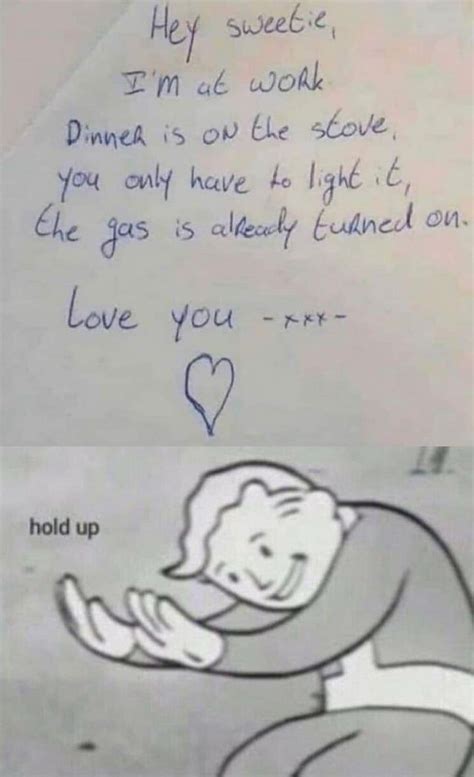 Hey sweetie,
I'm at work
Dinner is on the stove,
you only have to light it,
the gas is already turned on.
Love you -xxx-
hold up